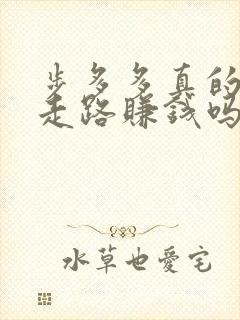 步多多真的
走路赚钱吗
水草也爱宅